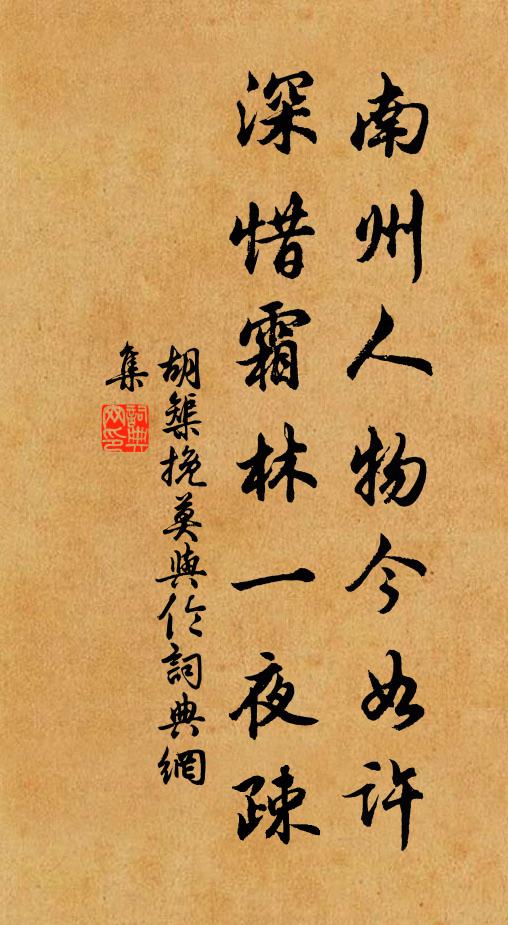 南州人物今如許
深惜霜林一夜疎
胡榘挽莫與伦詞典網
集
詞典網印